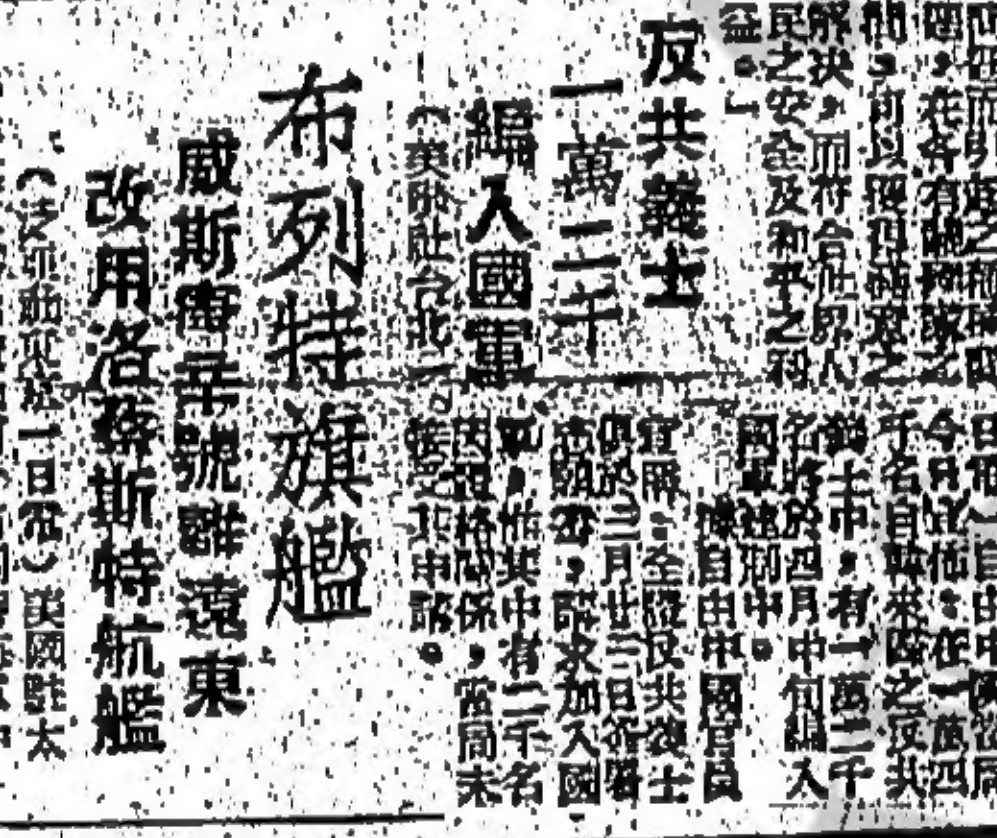 解决，而符合世界人
民之安全及和平之利
益。」
反共義士
一萬二千
編入國軍
（美聯社台北二
日電）自由中國當局
今日宣佈：在一萬四
千名自韓來臺之反共
義士中，有一萬二千
名將於四月中旬編入
國軍建制中。
據自由中國官員
宣稱：全體反共義士
俱於三月廿三日簽署
志願書，請求加入國
軍，惟其中有二千名
因體格關係，當局未
接受其申請。
布列特旗艦
威斯康辛號離遠東
改用洛徹斯特航艦
一日電）美國駐太